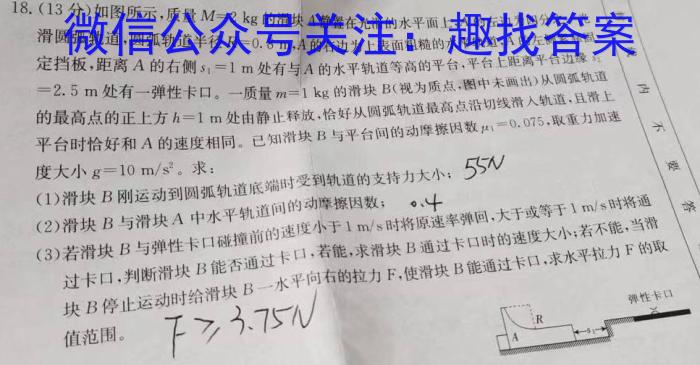 18.(13分)如图所示,质量M=2 kg的滑块A静置在光滑的水平面上
微信公众号关注：趣找答案
滑圆弧轨道,圆弧轨道半径R=0.8 m,A的右边为上表面粗糙的水平
定挡板,距离A的右侧s₁=1 m处有与A的水平轨道等高的平台,平台上距离平台边缘s₂
=2.5 m处有一弹性卡口。一质量m=1 kg的滑块B(视为质点,图中未画出)从圆弧轨道
的最高点的正上方h=1 m处由静止释放,恰好从圆弧轨道最高点沿切线滑入轨道,且滑上
平台时恰好和A的速度相同。已知滑块B与平台间的动摩擦因数μ₁=0.075,取重力加速
度大小g=10 m/s²。求：
(1)滑块B刚运动到圆弧轨道底端时受到轨道的支持力大小；55N
(2)滑块B与滑块A中水平轨道间的动摩擦因数；0.4
(3)若滑块B与弹性卡口碰撞前的速度小于1 m/s时将原速率弹回,大于或等于1 m/s时将通
过卡口,判断滑块B能否通过卡口,若能,求滑块B通过卡口时的速度大小;若不能,当滑
块B停止运动时给滑块B一水平向右的拉力F,使滑块B能通过卡口,求水平拉力F的取
值范围。
F≥3.75N
弹性卡口
R
A
s₁
内
不
要
答